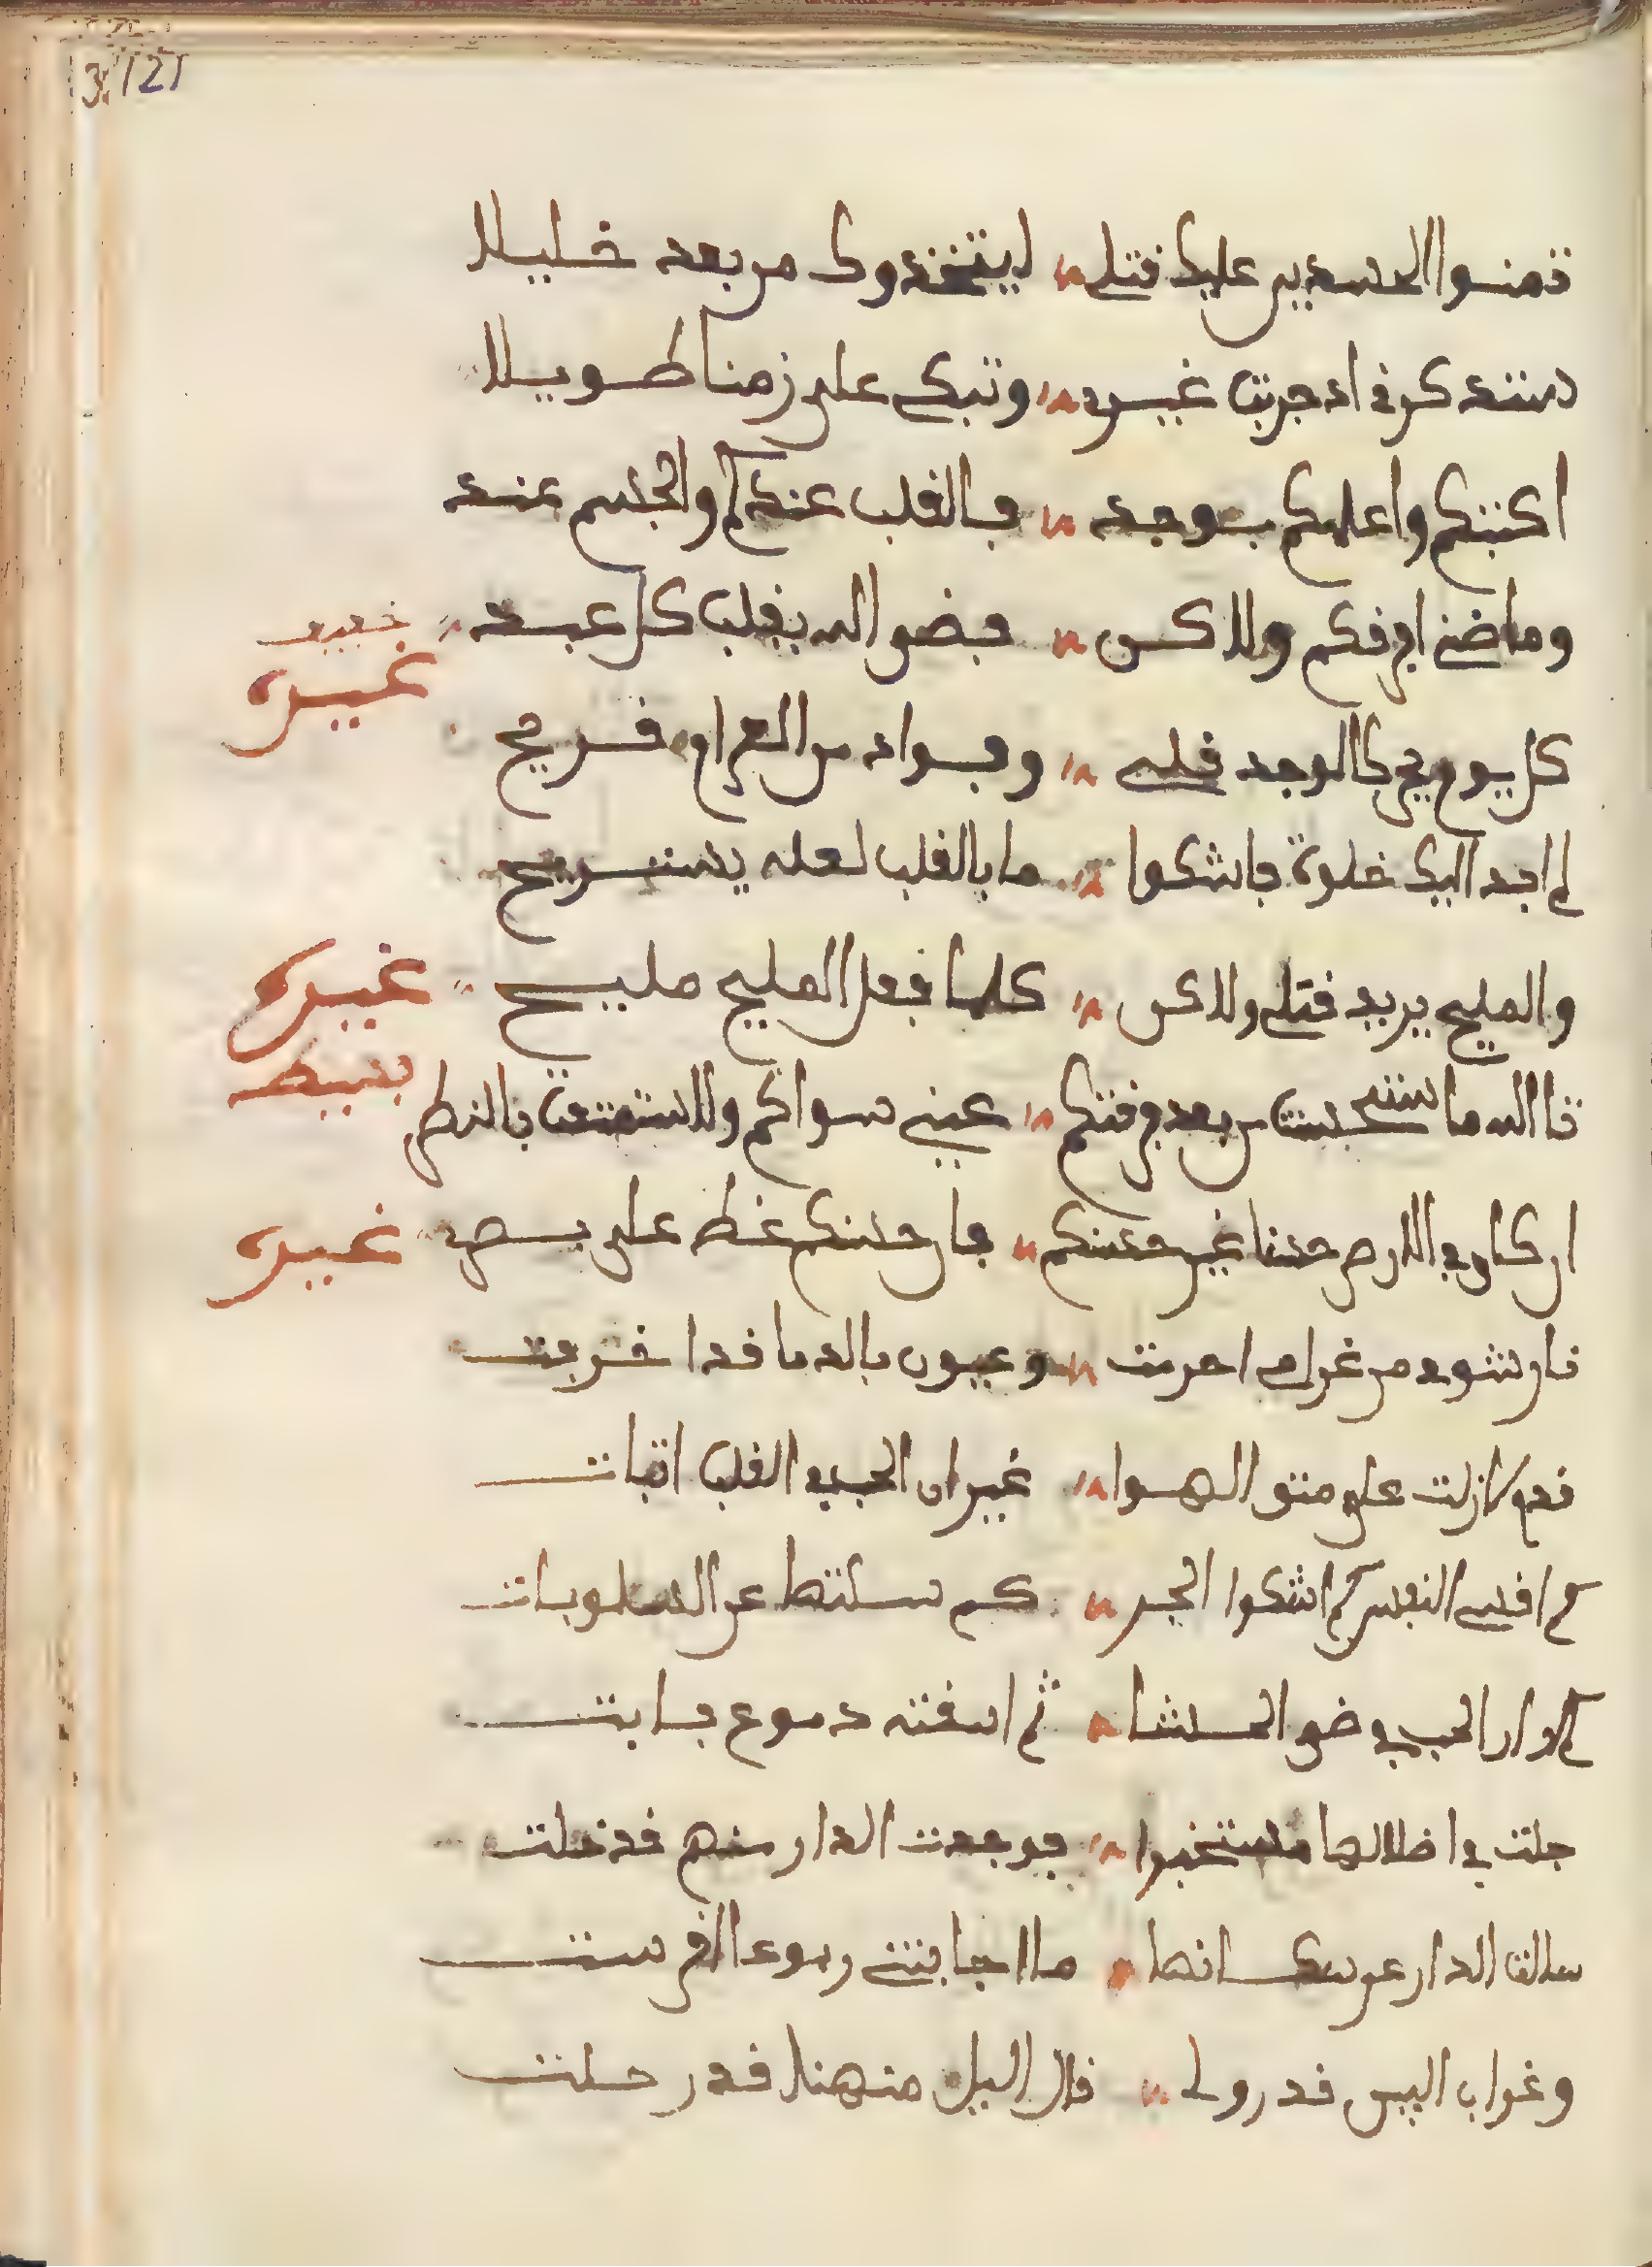 3/121
تمنوا الحسدين عليك قتلي ؞ ليتخذوك من بعد خليلا
ستتذكرني اذ جربت غيري ؞ وتبكي على زمنا طويلا
اكتبكم واعلمكم بوجد ؞ فالقلب عندكم والجسم عند
وما ضني افرقكم ولاكن ؞ فضو الله يغلب كل عبد خفيف
غيره
كل يوم يحركالوجد قلبي ؞ وفواد من الغرام قريح
لم اجد اليك خلوة فاشكوا ؞ ما بالقلب لعله يستريح
والمليح يريد قتلي ولاكن ؞ كلما فعل المليح مليح غيره
تا الله ما ستحسنت من بعد فرقتكم ؞ عيني سواكم ولا ستمتعت بالنظر بسيط
ان كان في الارض حسنا غير حسنكم ؞ فان حسنكم غطى على بصر غيره
نار شوق من غرام احرمت ؞ وعيون بالدما قد اقرحت
قدم لازلت على متو الهوا ؞ غير ان الحب في القلب اثبات
كم اقسي النفس كم اشكوا الجر ؞ كم سلتها عن السلوبات
كم اوار الحب في ضو الحشا ؞ ثم اسقته دموع فابت
جلت في اطلالها مستخبرا ؞ فوجدت الدار منهم قد خلت
سالت الدار عن سكانها ؞ ما اجابتني ربوعا اخرست
وغراب البين قد رولى ؞ قال اليل منهنا قد رحلت